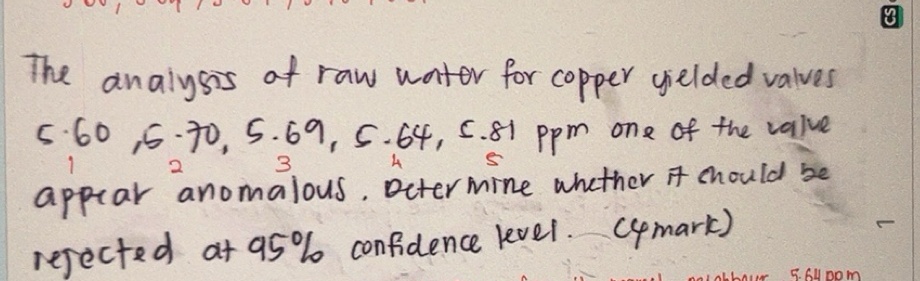 The analysis of raw water for copper yielded valves
5.60, 5.70, 5.69, 5.64, 5.81 ppm one of the value
1 2 3 4 5
appear anomalous. Determine whether it should be
rejected at 95% confidence level. (4 mark)
neighbour 5.64 ppm
CS